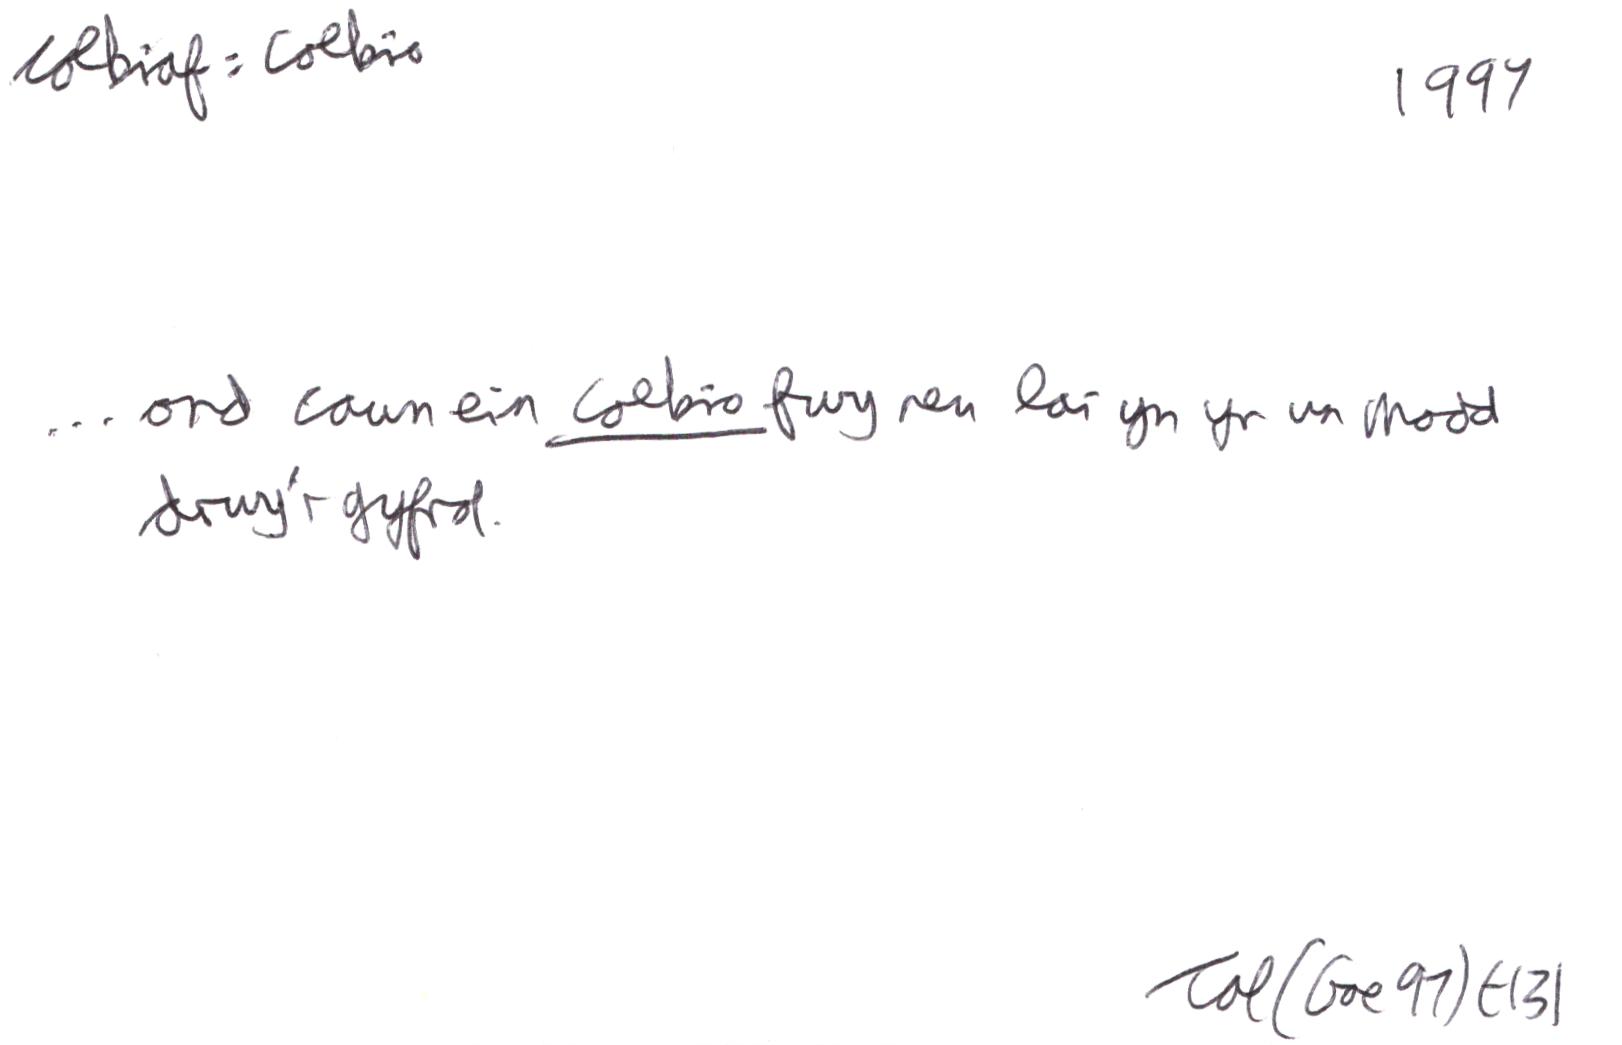 colbiaf: colbio
1997
... ond cawn ein colbio fwy neu lai yn yr un modd
drwy'r gyfrol.
Tal (Goe 97) t131